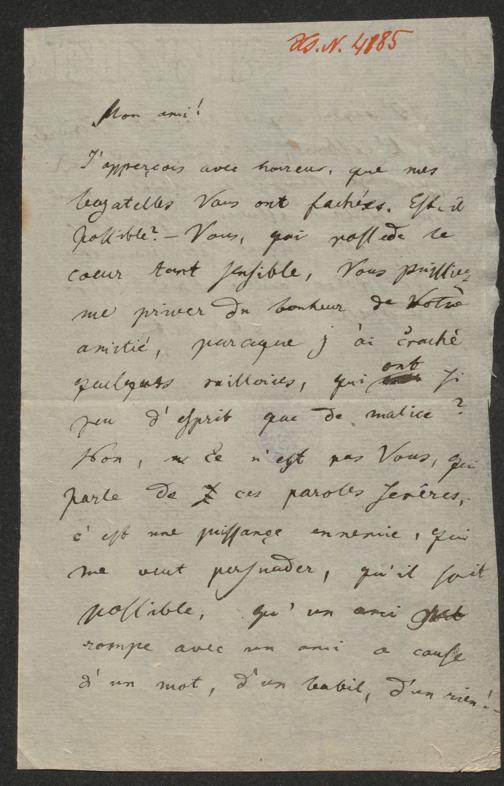 Hs. N. 4885
Mon ami!
J'apperçois avec horreur, que mes
bagatelles Vous ont fachées. Est-il
possible? – Vous, qui possede le
coeur tant sensible, Vous puissiez
me priver du bonheur de Votre
amitié, parceque j'ai craché
quelques railleries, qui ont si
peu d'esprit que de malice?
Non, Ce n'est pas Vous, qui
parle de ces paroles sevères,
c'est une puissance ennemie, qui
me veut persuader, qu'il soit
possible, qu'un ami
rompe avec un ami a cause
d'un mot, d'un babil, d'un rien!